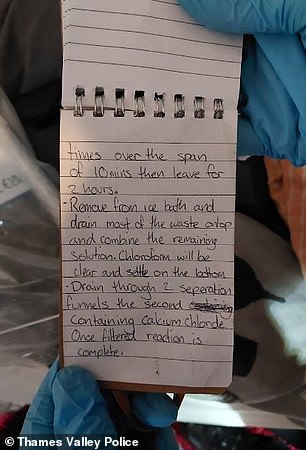 times over the span
of 10mins then leave for
2 hours.
- Remove from ice bath and
drain most of the waste ontop
and combine the remaining
solution. Chloroform will be
clear and settle on the bottom
- Drain through 2 seperation
funnels the second
containing calcium chloride.
Once filtered reaction is
complete.
© Thames Valley Police